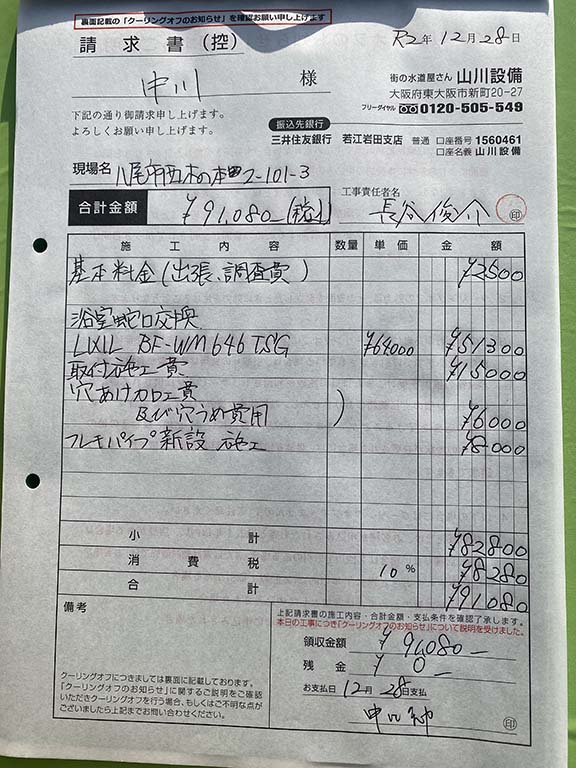 裏面記載の「クーリングオフのお知らせ」を確認お願い申し上げます
請求書(控)
R2年12月28日
中川 様
下記の通り御請求申し上げます。
よろしくお願い申し上げます。
街の水道屋さん 山川設備
大阪府東大阪市新町20-27
フリーダイヤル 0120-505-549
振込先銀行
三井住友銀行 若江岩田支店 普通 口座番号 1560461
口座名義 山川設備
現場名 八尾市西木の本 2-101-3
合計金額 ¥91,080
工事責任者名
長谷俊介 印
施工内容 数量 単価 金額
基本料金(出張、調査費) ¥2500
浴室蛇口交換
LIXIL BF-WM646TSG ¥64000 ¥51300
取付施工費 ¥15000
穴あけ加工費
及び穴うめ費用 ) ¥6000
フレキパイプ新設 施工 ¥8000
小計 ¥82800
消費税 10% ¥8280
合計 ¥91080
備考
クーリングオフにつきましては裏面に記載しております。
「クーリングオフのお知らせ」に関するご説明をご確認
いただきクーリングオフを行う場合、もしくはご不明な点が
ございましたら上記までお問い合わせください。
上記請求書の施工内容・合計金額・支払条件を確認了承します。
本日の工事につき「クーリングオフのお知らせ」について説明を受けました。
領収金額 ¥91,080-
残金 ¥0-
お支払日 12月28日支払
印